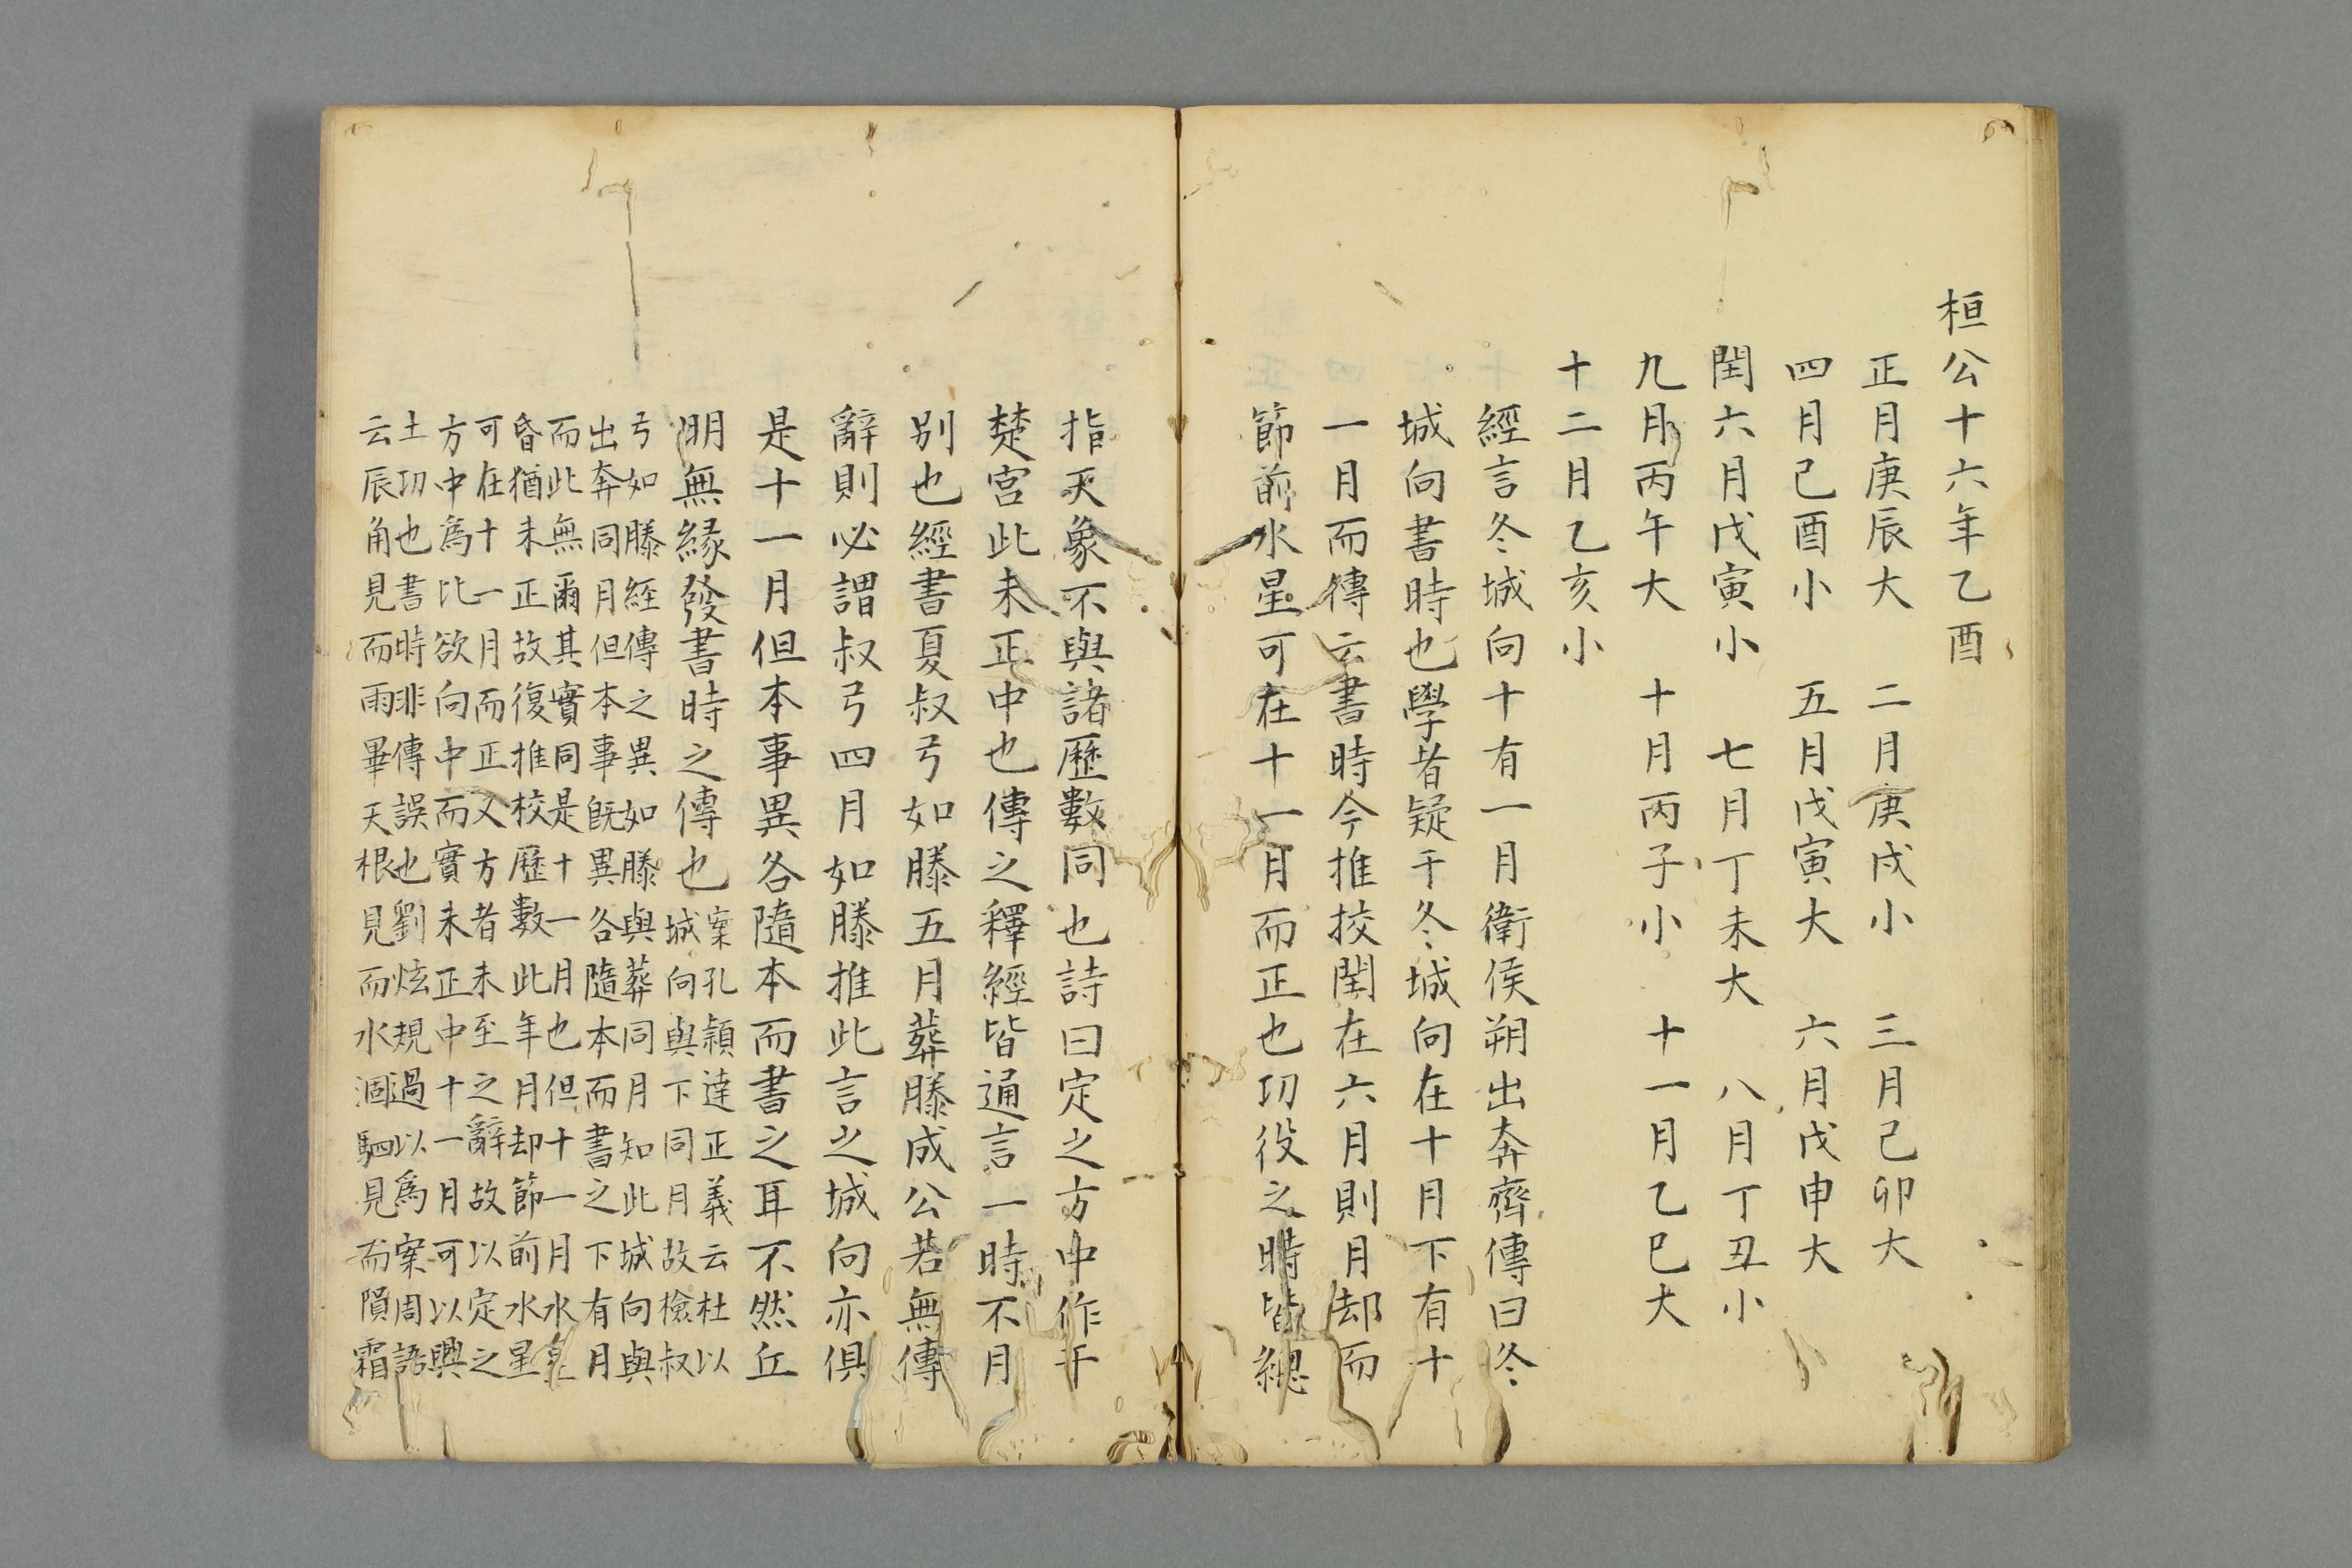 桓公十六年乙酉
正月庚辰大 二月庚戌小 三月己卯大
四月己酉小 五月戊寅大 六月戊申大
閏六月戊寅小 七月丁未大 八月丁丑小
九月丙午大 十月丙子小 十一月乙巳大
十二月乙亥小
經言冬城向十有一月衛侯朔出奔齊傳曰冬
城向書時也學者疑于冬城向在十月下有十
一月而傳云書時今推挍閏在六月則月却而
節前水星可在十一月而正也功役之時皆緫
指天象不與諸歷數同也詩曰定之方中作于
楚宮此未正中也傳之釋經皆通言一時不月
別也經書夏叔弓如滕五月葬滕成公若無傳
辭則必謂叔弓四月如滕推此言之城向亦俱
是十一月但本事異各隨本而書之耳不然丘
明無緣發書時之傳也
案孔穎達正義云杜以
城向與下同月故檢叔
弓如滕經傳之異如滕與葬同月知此城向與
出奔同月但本事既異各隨本而書之下有月
而此無爾其實同是十一月也但十一月水星
昏猶未正故復推校歷數此年月却節前水星
可在十一月而正又方者未至之辭故以定之
方中為比欲向中而實未正中十一月可以興
土功也書時非傳誤也劉炫規過以為案周語
云辰角見而雨畢天根見而水涸駟見而隕霜